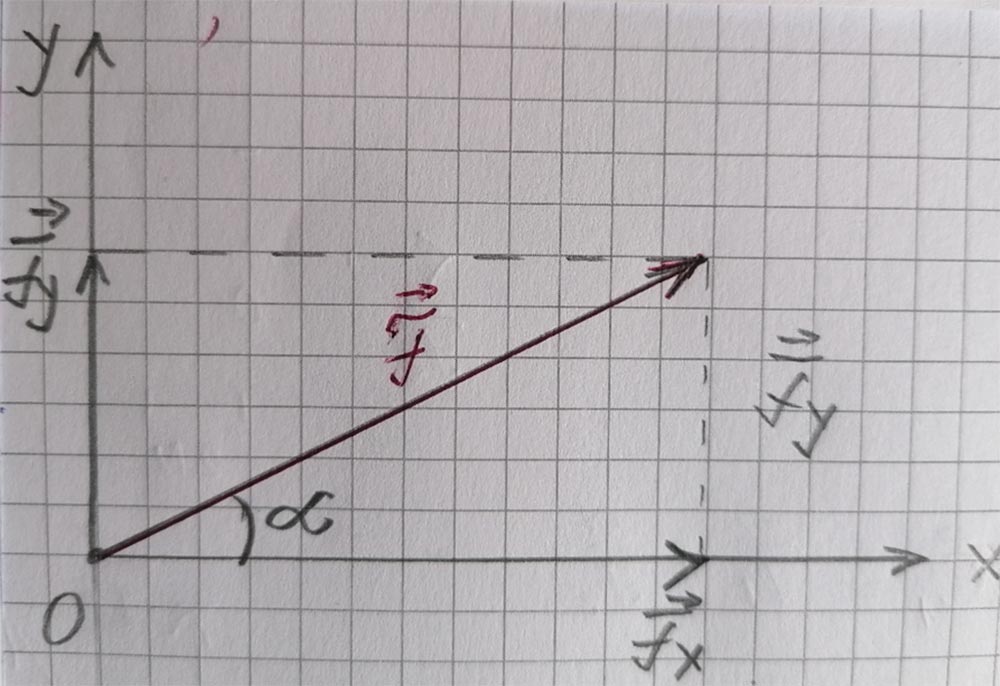 y
f⃗y
f⃗
f⃗y
α
O
x
f⃗x